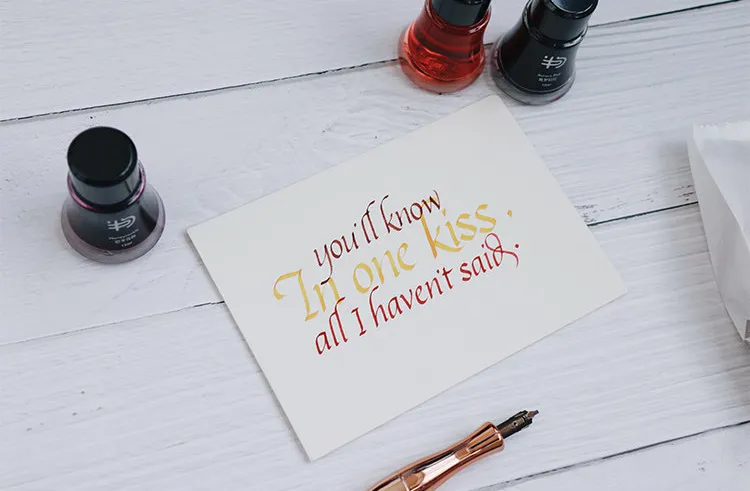 you'll know
In one kiss.
all I haven't said.